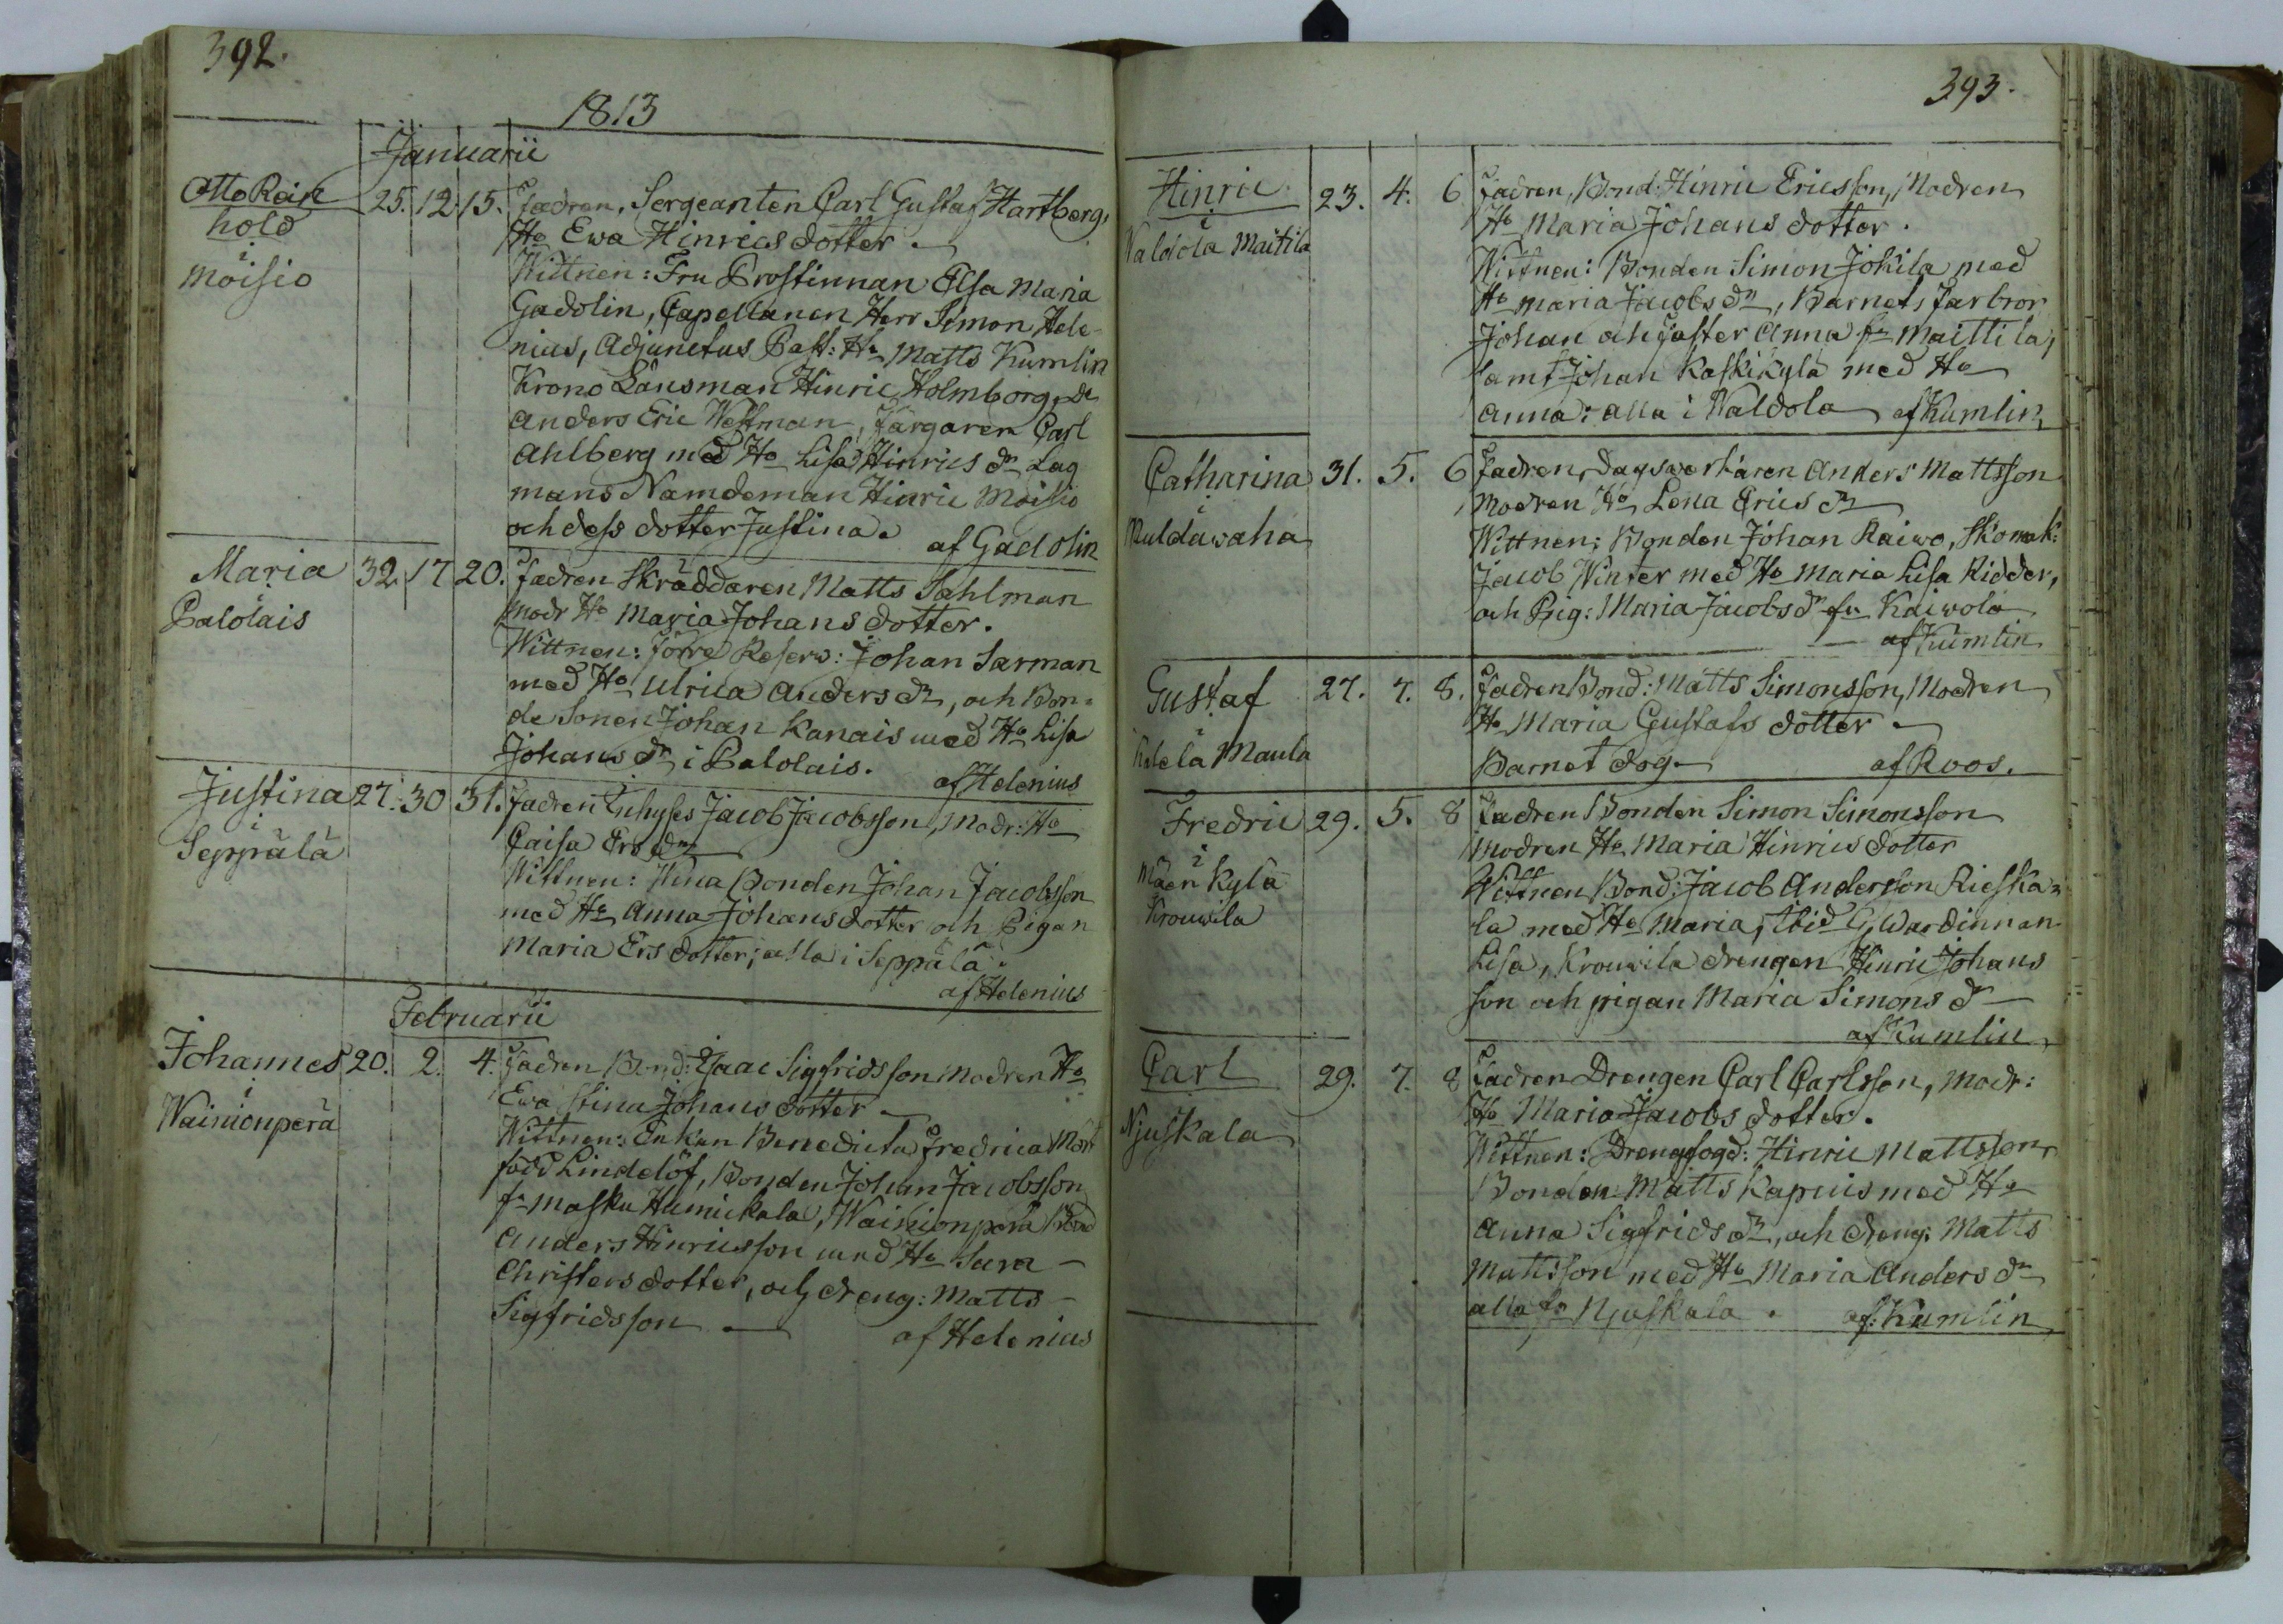 392.
1813
Januarii
Otto Rein
hold
i
Moisio
25. 12. 15. Fadren, Sergeanten Carl Gustaf Hartberg,
Ho Ewa Hinrics dotter.
Wittnen: Fru Prostinnan Elsa Maria
Gadolin, Capellanen Herr Simon Hele-
nius, Adjunctus Past: Hr Matts Kumlin
Krono Länsman Hinric Holmborg,
Anders Eric Westman, Färgaren Carl
Ahlberg med Ho Lisa Hinrics dr Lag
mans Nämdeman Hinric Moisio
och dess dotter Justina.
af Gadolin
Maria
i
Palolais
32. 17 20. Fadren Skräddaren Matts Sahlman
modr Ho Maria Johans dotter.
Wittnen: förre Reserv: Johan Sarman
med Ho Ulrica Anders dr, och Bon-
de Sonen Johan Kanais med Ho Lisa
Johans dr i Palolais.
af Helenius
Justina
i
Seppälä
27. 30 31. Fadren Inhyses Jacob Jacobsson, Modr: Ho
Caisa Ers dr
Wittnen: Bonden Johan Jacobsson
med Ho Anna Johans dotter och Pigan
Maria Ers dotter; alla i Seppälä.
af Helenius
Februarii
Johannes
i
Wainionperä
20. 2. 4. Fadren Bond: Isaac Sigfridsson Modren Ho
Ewa Stina Johans dotter
Wittnen: Enkan Benedicta Fredrica
född Lindelöf, Bonden Johan Jacobsson
fr Masku Humickala, Wainionperä Bond
Anders Hinricsson med Ho Sara
Christers dotter, och dreng: Matts
Sigfridsson
af Helenius
393.
Hinric
i
Waldola Maitila
23. 4. 6 Fadren, Bond: Hinric Ericsson, Modren
Ho Maria Johans dotter.
Wittnen: Bonden Simon Jokila med
Ho Maria Jacobs dr, Barnets Farbror
Johan och Faster Anna fr Maittila,
samt Johan Kaskikylä med Ho
Anna: alla i Waldola af Kumlin
Catharina
i
Muldawaha
31. 5. 6 Fadren, Dagswerkaren Anders Mattsson
Modren Ho Lena Erics dr
Wittnen: Bonden Johan Raiwo, Skomak:
Jacob Winter med Ho Maria Lisa Ridder,
och Pig: Maria Jacobs dr fr Kaiwola
af Kumlin
Gustaf
i
Kalela Maula
27. 7. 8. Fadren Bond: Matts Simonsson, Modren
Ho Maria Gustafs dotter
Barnet dog. af Roos.
Fredric
i
Mäenkylä
Krouwila
29. 5. 8 Fadren Bonden Simon Simonsson
Modren Ho Maria Hinrics dotter
Wittnen Bond: Jacob Andersson Rieska-
la med Ho Maria, Ibid G, Wardinnan
Lisa, Krouwila drengen Hinric Johans
son och pigan Maria Simons dr
af Kumlin
Carl
i
Njuskala
29. 7. 8 Fadren Drengen Carl Carlsson, Modr:
Ho Maria Jacobs dotter.
Wittnen: Drengfogd: Hinric Mattsson,
Bonden Matts Kapuis med Ho
Anna Sigfrids dr, och dreng: Matts
Mattsson med Ho Maria Anders dr
alla fr Njuskala. af: Kumlin